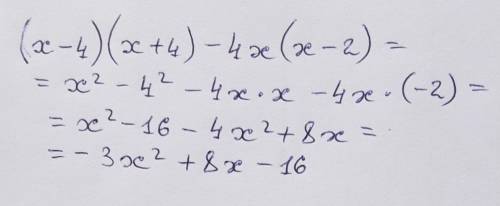 (x-4)(x+4)-4x(x-2)=
= x² - 4² - 4x·x - 4x·(-2) =
= x² - 16 - 4x² + 8x =
= - 3x² + 8x - 16